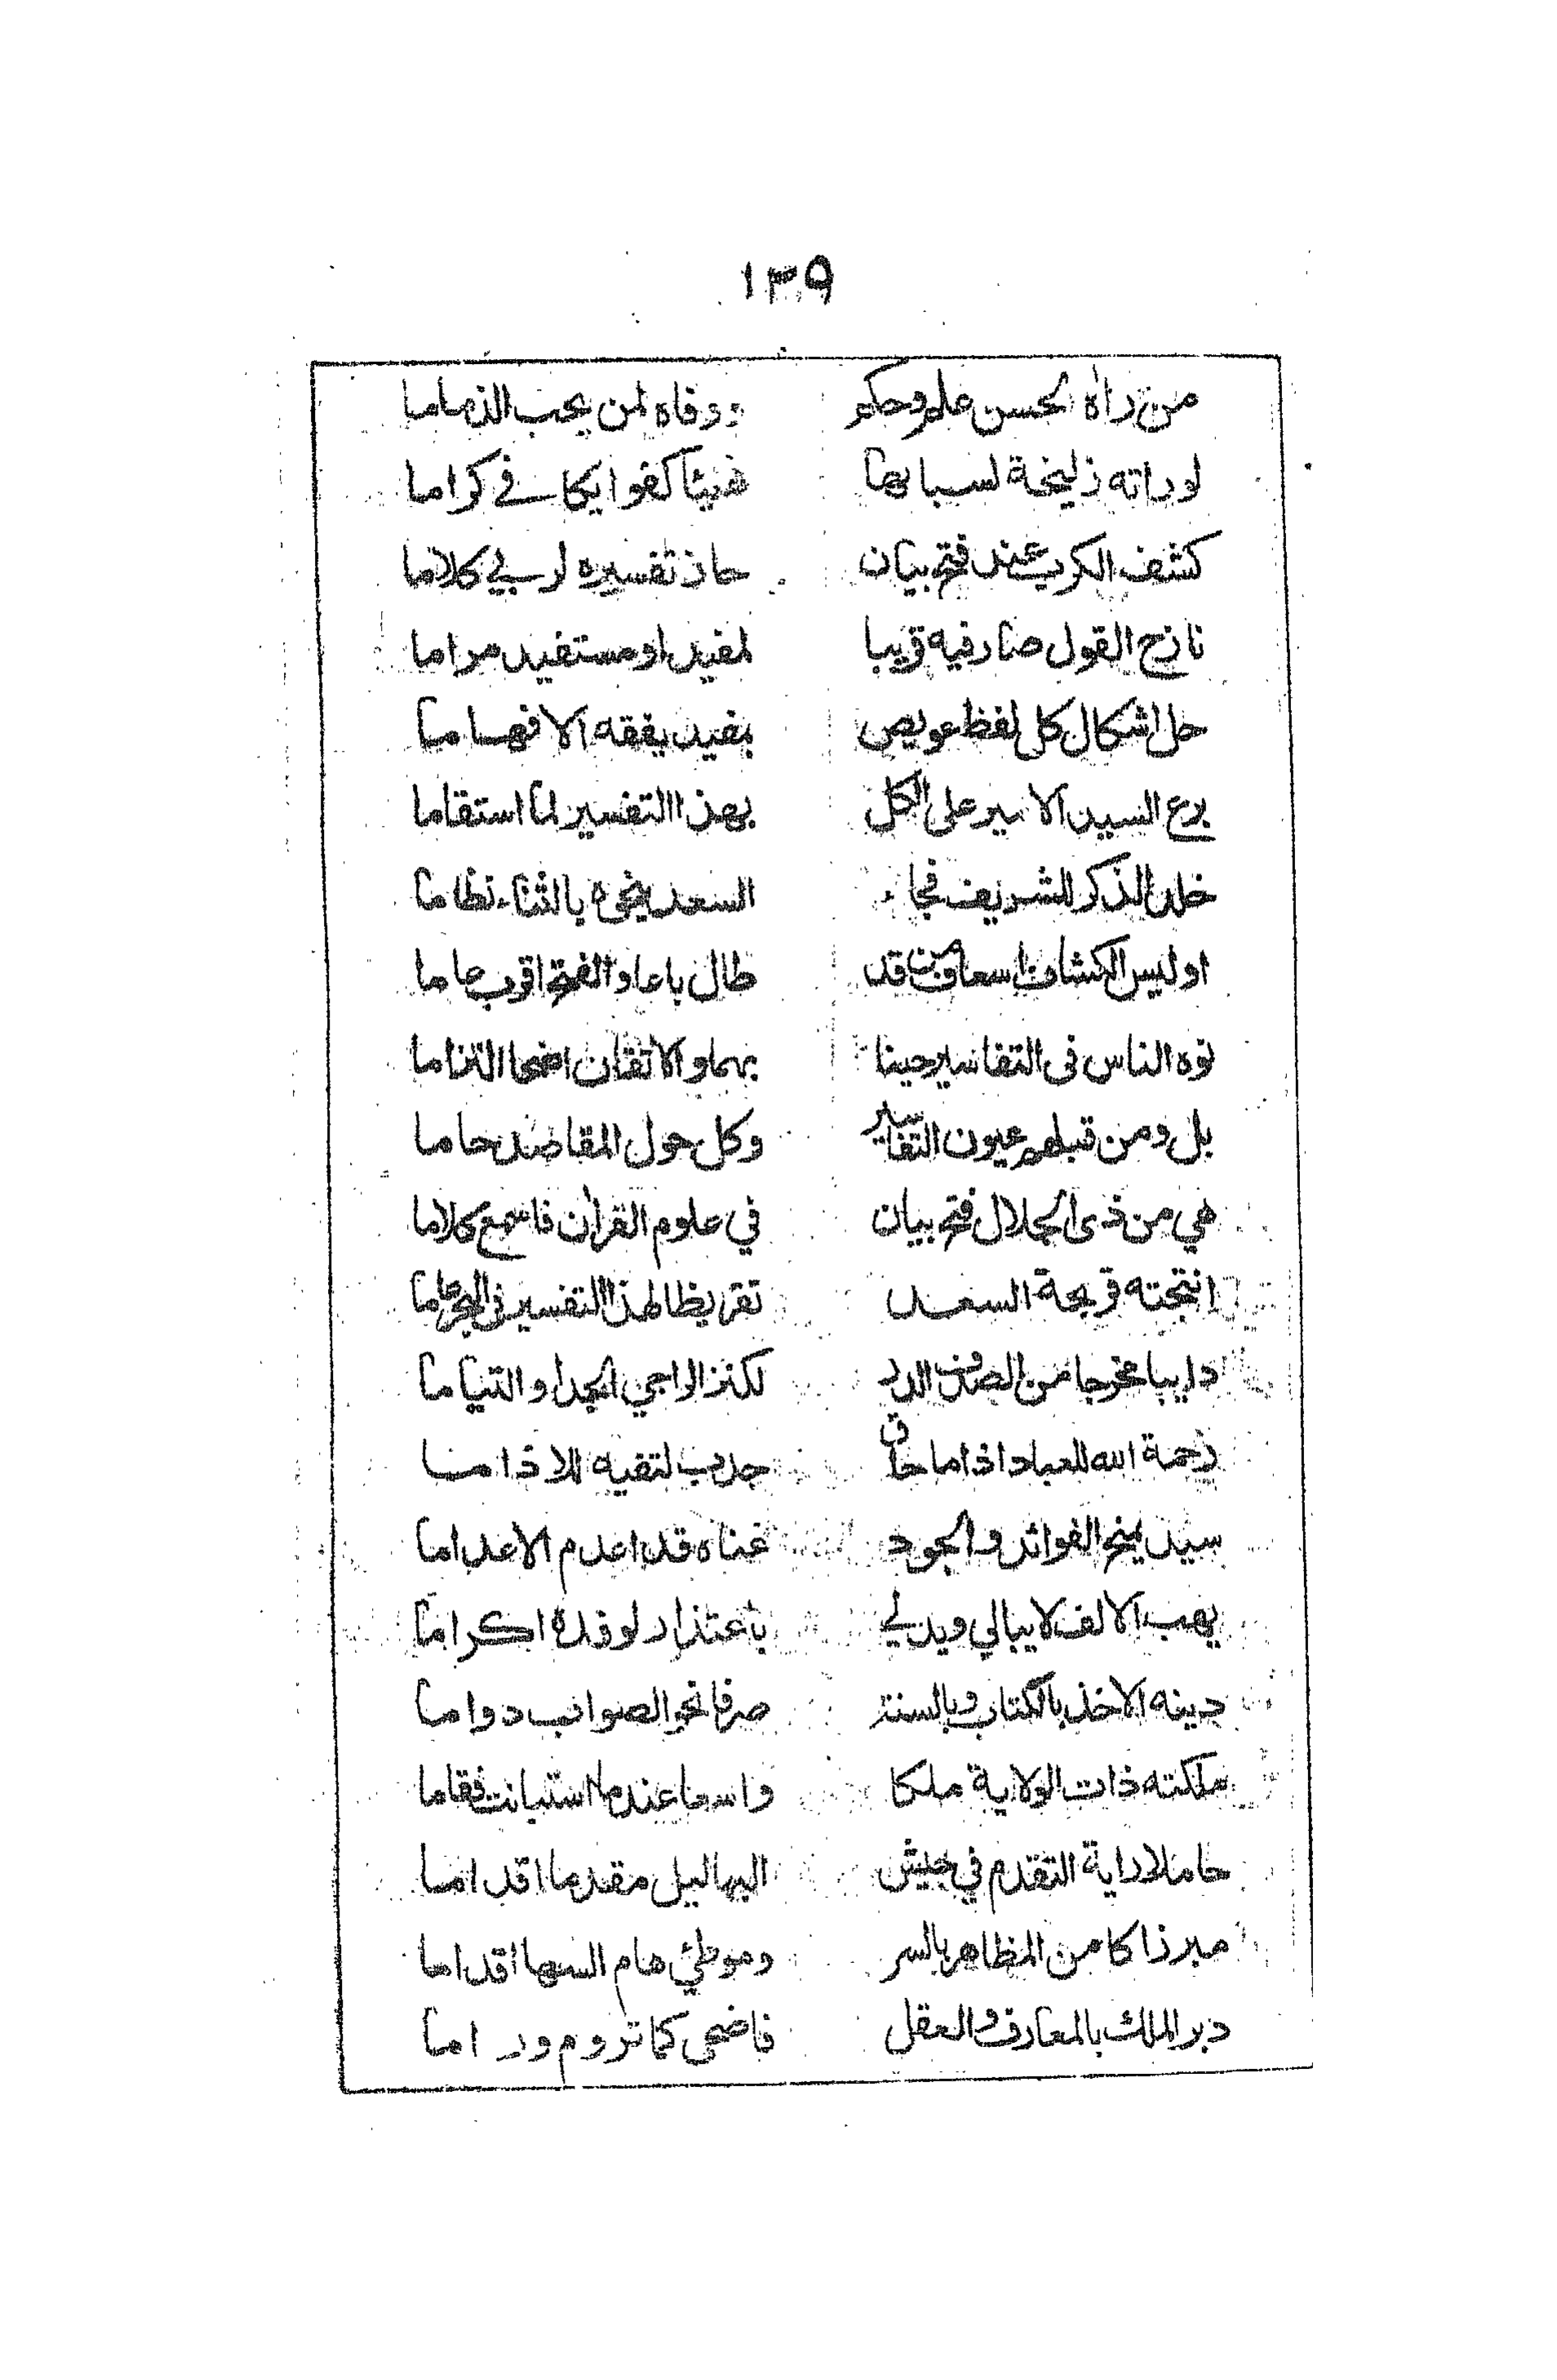 ١٣٩
من راٰه الحسن علم وحكم ووفاه لمن يحب الذماما
لوراته زليخة لسبا بها هنيئا كفوا يكافى كراما
كشف الكرب عند فتح بيان حاز تفسيره لربي كلاما
نازح القول صار فيه قريبا لمفيد او مستفيد مراما
حل اشكال كل لفظ عويص بمفيد يفقه الافهاما
برع السيد الامير على الكل بهذا التفسير لما استقاما
خلد الذكر للشريف فجاء السعد ينحوه بالثناء نظاما
اوليس الكشاف اسعاف من قد طال باعا والفتح اقرب عاما
نوه الناس فى التفاسير حينا بهما والاتقان اضحى التزاما
بل ومن قبلهم عيون التفاسير وكل حول المقاصد حاما
هي من ذى الجلال فتح بيان في علوم القراٰن فاسمع كلاما
انتجته قريحة السعد تقريظا لهذا التفسير فى البحر عاما
داريبا مخرجا من الصدف الدر لكنز الراجي الجدا والتياما
رحمة الله للعباد اذا ما حاق جدب لتقيه للاذاما
سيد يمنح الفوائد والجود غناه قد اعدم الاعداما
يهب الالف لا يبالي ويدلي باعتذار لوفده اكراما
دينه الاخذ بالكتاب وبالسنة صرفا نحو الصواب دواما
ملكته ذات الولاية ملكا واسعا عندما استبانت فقاما
حاملا راية التقدم في جيش البهاليل مقدما اقداما
مبرزا كامن المظاهر بالسر وموطئ هام السها اقداما
دبر الملك بالمعارف والعقل فاضحى كما تروم وراما